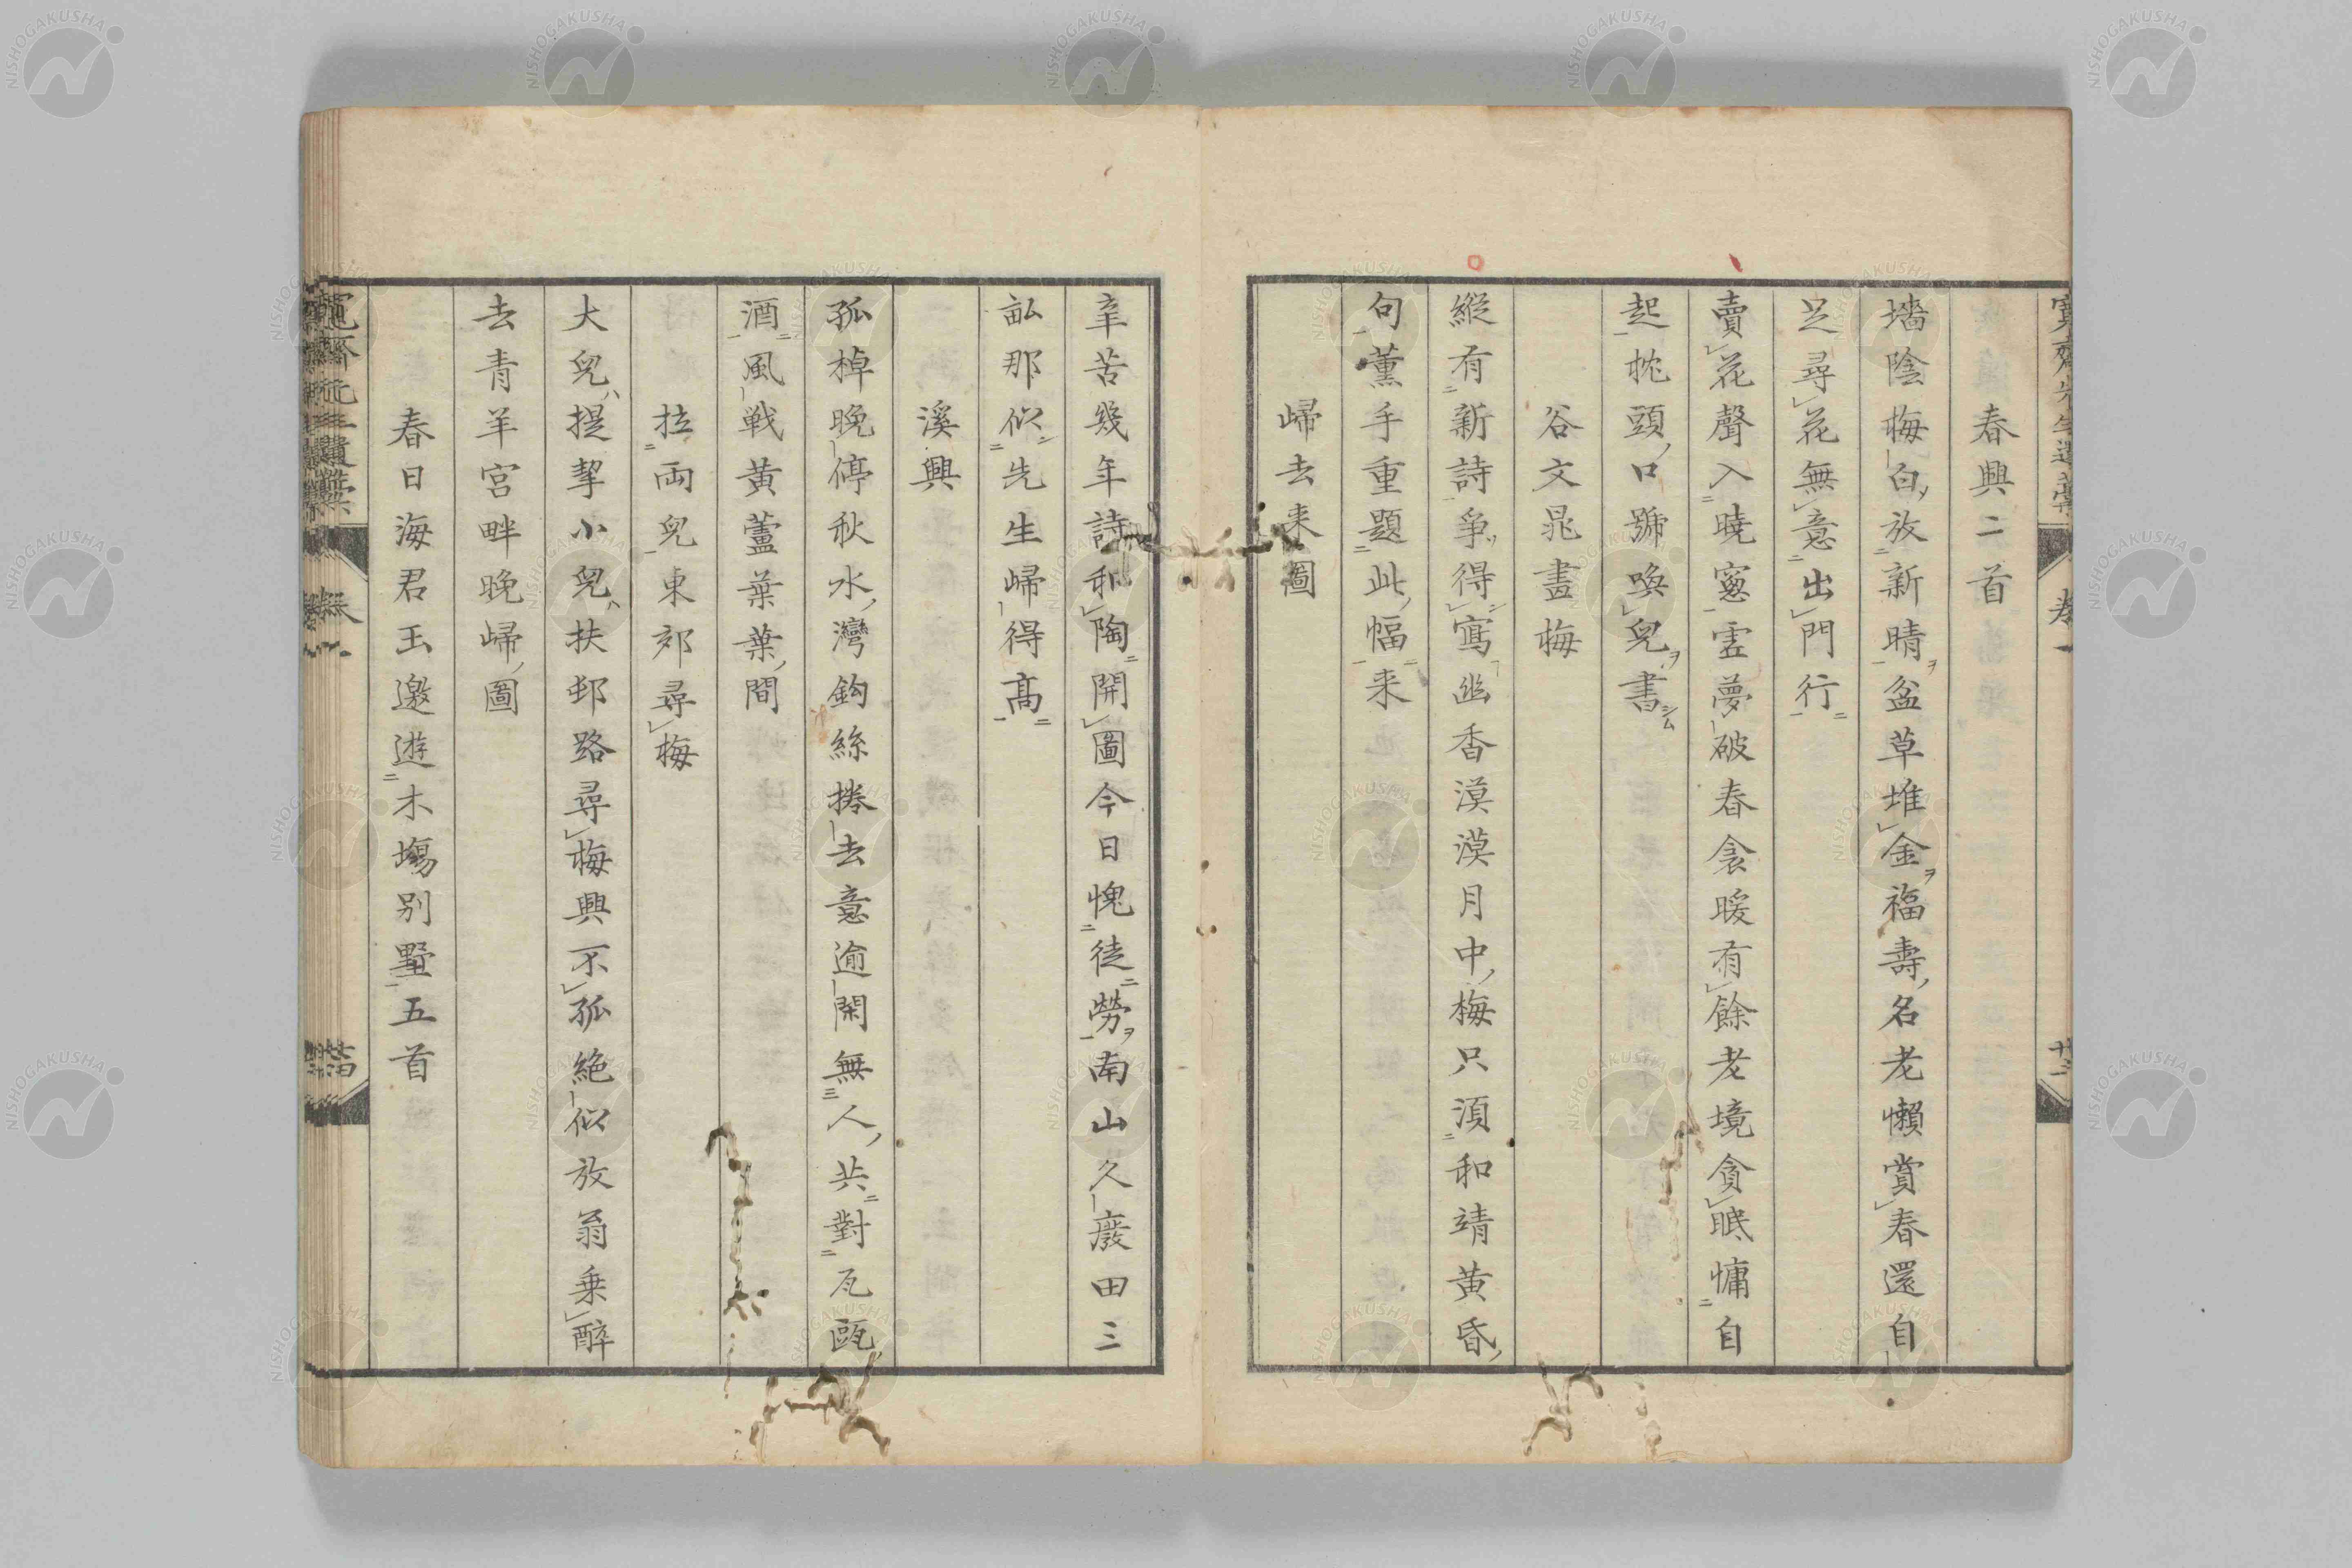 寛齋先生遺藁
卷一
春興二首
墻陰梅白放新晴盆草堆金福壽名老懶賞春還自
足尋花無意出門行
賣花聲入曉窻雲夢破春衾暖有餘老境貪眠慵自
起枕頭口號喚兒書
谷文晁畫梅
縱有新詩爭得寫幽香漠漠月中梅只須和靖黄昏
句薰手重題此幅来
歸去来圖
辛苦幾年詩和陶開圖今日愧徒勞南山久廢田三
畝那似先生歸得高
溪興
孤棹晚停秋水灣鈎絲捲去意逾閑無人共對瓦甌
酒風戰黄蘆葉葉間
拉兩兒東郊尋梅
大兒提挈小兒扶邨路尋梅興不孤絶似放翁乗醉
去青羊宫畔晚歸圖
春日海君玉邀遊木塲別墅五首
NISHOGAKUSHA